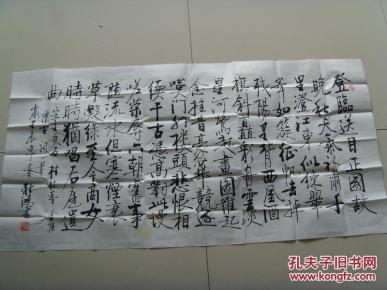 登臨送目正國故
晚秋天氣初肅千
里澄江似練翠峰
如簇征帆去棹
殘陽里背西風酒
旗斜矗彩舟雲淡
星河鷺起畫圖難足
念往昔繁華競逐
嘆門外樓頭悲恨相
續千古憑高對此謾
嗟榮辱六朝舊事
隨流水但寒煙衰
草凝綠至今商女
時時猶唱后庭遺
曲